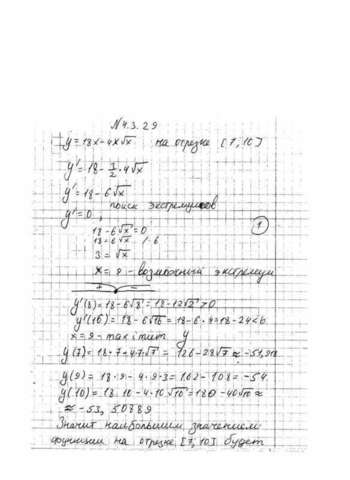 №4.3.29
y = 18x - 4x√x на отрезке [7, 10]
y' = 18 - 3/2 · 4√x
y' = 18 - 6√x
y' = 0, поиск экстремумов
18 - 6√x = 0
18 = 6√x / : 6
3 = √x
x = 9 - возможный экстремум
1
+ -
y'(8) = 18 - 6√8 = 18 - 12√2 > 0
y'(16) = 18 - 6√16 = 18 - 6 · 4 = 18 - 24 < 0
x = 9 - max y
y(7) = 18 · 7 - 4 · 7√7 = 126 - 28√7 ≈ -51,918
y(9) = 18 · 9 - 4 · 9 · 3 = 162 - 108 = -54
y(10) = 18 · 10 - 4 · 10√10 = 180 - 40√10 ≈
≈ -53, 50789
Значит наибольшим значением
функции на отрезке [7, 10] будет